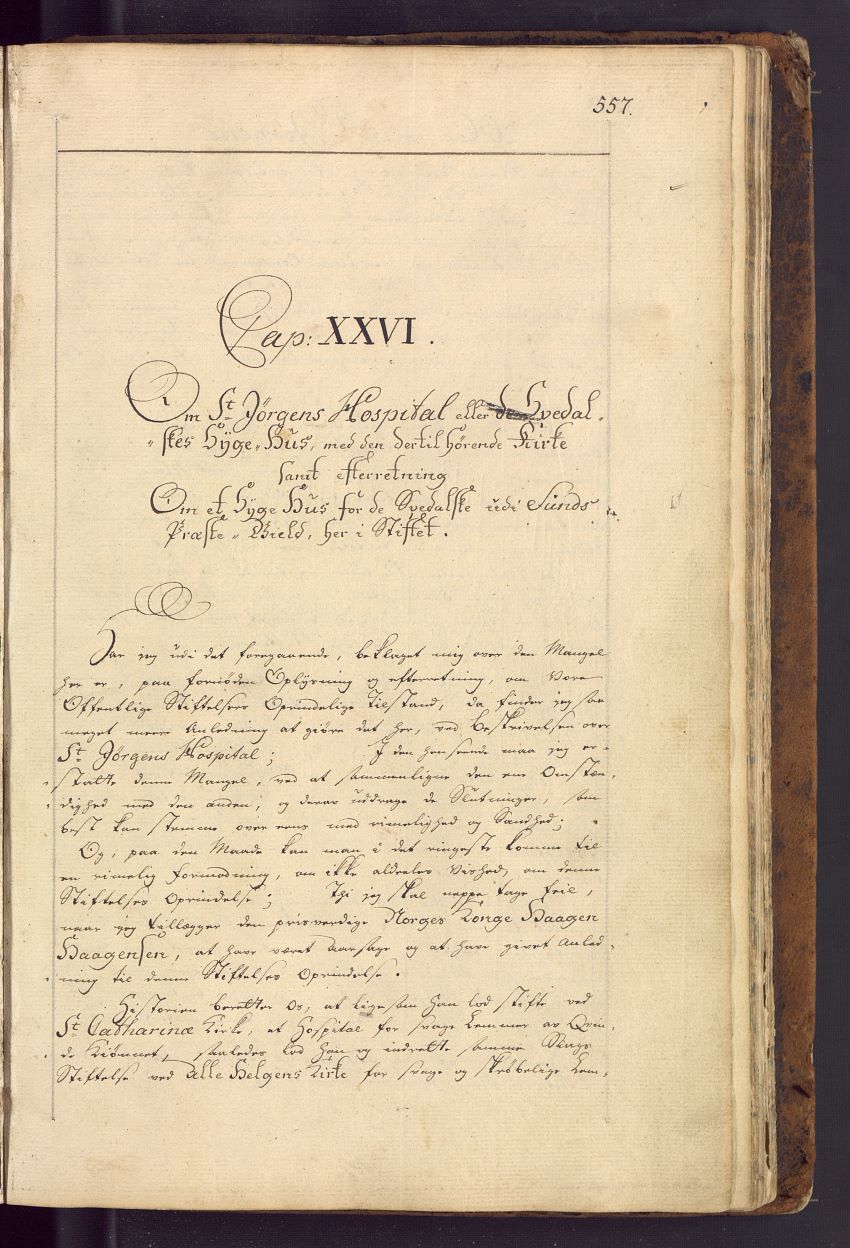 557.
Cap: XXVI.
Om St Jörgens Hospital eller de Spedal-
skes Hÿge-Hüs, med den dertil hörende Kirke
samt efterretning
Om et Sÿge Hüs for de Spedalske udi Sunds
Præste-Gield, her i Stiftet.
Har jeg udi det foregaaende, beklaget mig over den Mangel
her er, paa fornøden Oplysning og efterretning, om Vore
Offentlige Stiftelsers Oprindelige Tilstand, da finder jeg saa
meget meere Anledning at giøre det her, ved Beskrivelsen over
St Jörgens Hospital; I den henseende maa jeg er-
statte denne Mangel, ved at sammenligne den ene Omstæn-
dighed med den anden, og derav uddrage de Slutninger, som
best kan stemme over eens med rimelighed og Sandhed;
Og, paa den Maade kan man i det ringeste komme til
en rimelig formodning, om ikke aldeeles Vished, om denne
Stiftelses Oprindelse; Thi jeg skal neppe tage feil,
naar jeg tillægger den prisverdige Norges Konge Haagen
Haagensen, at have været Aarsage og at have givet Anled-
ning til denne Stiftelses Oprindelse.
Historien beretter os, at ligesom han lod stifte ved
St Catharinæ Kirke, et Hospital for svage Lemmer av Qvin-
de Kiønnet, saaledes lod han og indrette samme Slags
Stiftelse ved Alle Helgens Kirke for svage og skrøbelige Lem-